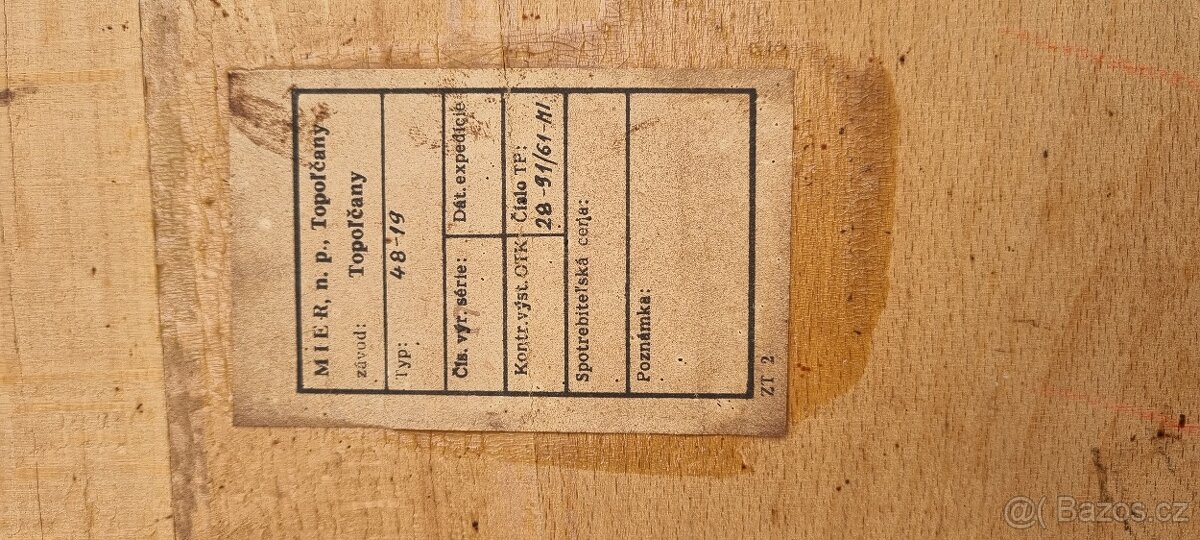 MIER, n. p., Topoľčany
závod: Topoľčany
Typ: 48-19
Čís. výr. série: Dát. expedície
Kontr. výst. OTK Číslo TP:
28-91/61-MI
Spotrebiteľská cena:
Poznámka:
ZT 2
@( Bazos.cz